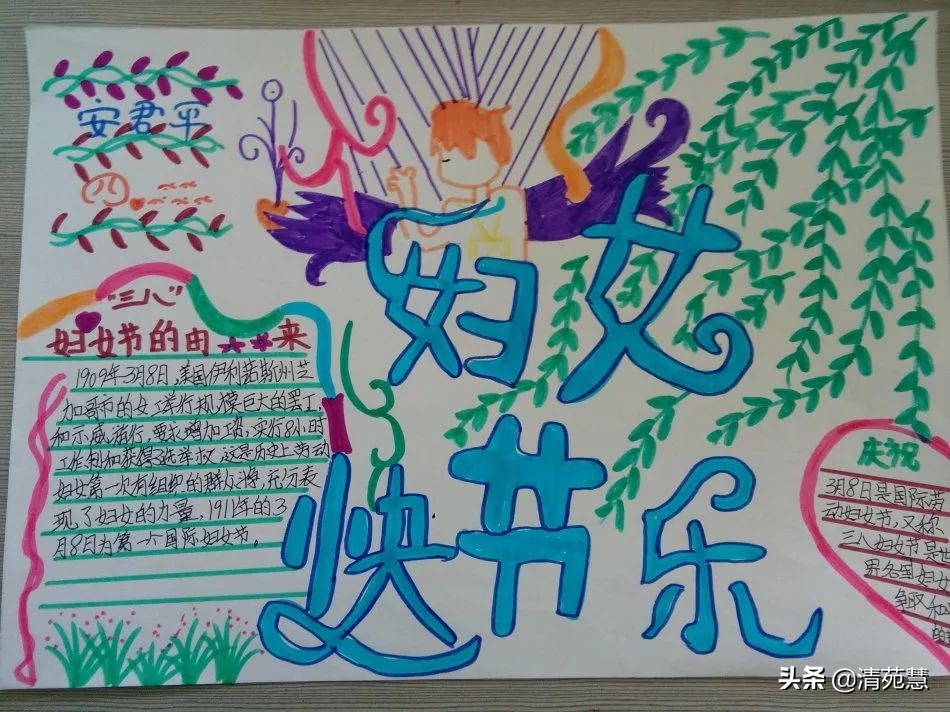 安君平
四
"三八"
妇女节的由来
1909年3月8日,美国伊利诺斯州芝
加哥市的女工举行规模巨大的罢工
和示威游行,要求增加工资,实行8小时
工作制和获得选举权,这是历史上劳动
妇女第一次有组织的群众斗争,充分表
现了妇女的力量,1911年的3
月8日为第一个国际妇女节。
妇女
节
快乐
庆祝
3月8日是国际劳
动妇女节,又称
三八妇女节是世
界各国妇女
争取和
头条 @清苑慧